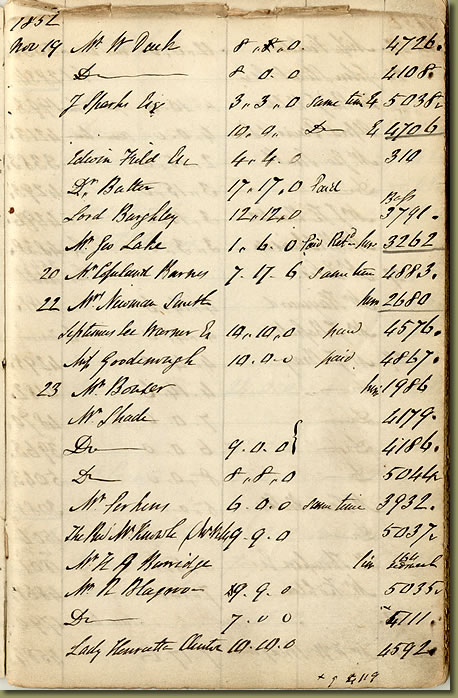 1852
Nov 19 Mr W Dack 8 . 8 . 0 4726.
Do 8 0 0 4108.
J Sparks Esq 3 . 3 . 0 same time & 5038
10 . 0 . Do & 4706
Edwin Field Esq 4 . 4 . 0 310
Dr Batter 17 . 17 . 0 Paid
Bass
Lord Burghley 12 . 12 . 0 3791.
Mr Geo Lake 1 . 6 . 0 Paid 3262
20 Mr Copeland Barnes 7 . 17 . 6 same time 4883.
22 Mr Newman Smith 2680
Septimus Lee Warner Esq 10 . 10 . 0 paid 4576.
Miss Goodenough 10 . 0 . 0 paid 4867.
23 Mr Bowser 1986
Mr Shade 4179.
Do 9 . 0 . 0 4186.
Do 8 . 8 . 0 5044
Mr Perkins 6 . 0 . 0 same time 3932.
The Revd Mr 9 . 9 . 0 5037
Mr
Mr R Blagrove 9 . 9 . 0 5035
Do 7 . 0 0 5111.
Lady Henrietta Clinton 10 . 10 . 0 4592.
119